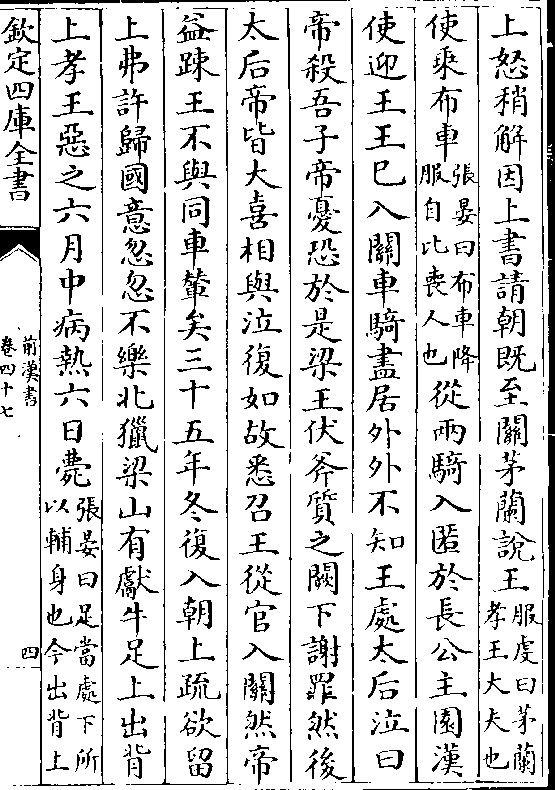 上怒稍解因上書請朝既至關茅蘭說王服虔曰茅蘭孝王大夫也
使乘布車張晏曰布車降服自比喪人也從兩騎入匿於長公主園漢
使迎王王巳入關車騎盡居外外不知王處太后泣曰
帝殺吾子帝憂恐於是梁王伏斧質之闕下謝罪然後
太后帝皆大喜相與泣復如故悉召王從官入關然帝
益踈王不與同車輦矣三十五年冬復入朝上疏欲留
上弗許歸國意忽忽不樂北獵梁山有獻牛足上出背
上孝王惡之六月中病熱六日薨張晏曰足當處下所以輔身也今出背上
欽定四庫全書
前漢書
卷四十七
四